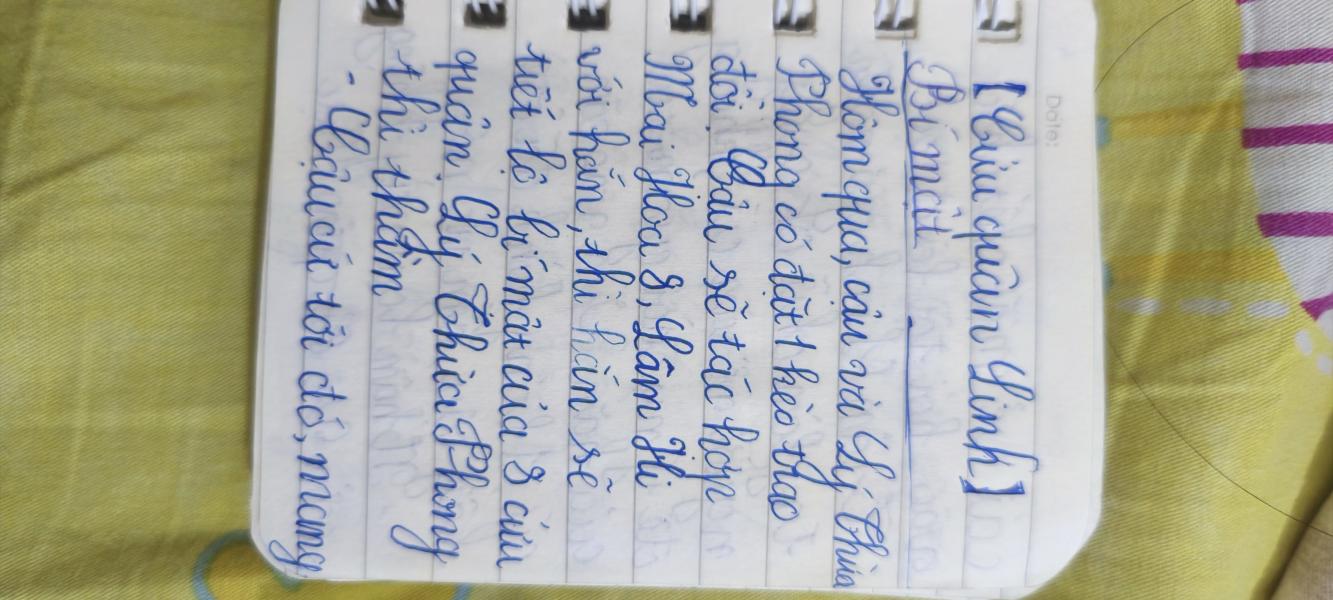 Date:
【Cửu quân Linh】
Bí mật
Hôm qua, cậu và Lý Thừa
Phong có đặt 1 kèo thao
đổi. Cậu sẽ tác hợp
Mai Hoa 8, Lâm Hi
với hắn, thì hắn sẽ
tiết lộ bí mật của 8 cửu
quân. Lý Thừa Phong
thì thầm
- Cậu cứ tới đó, mang